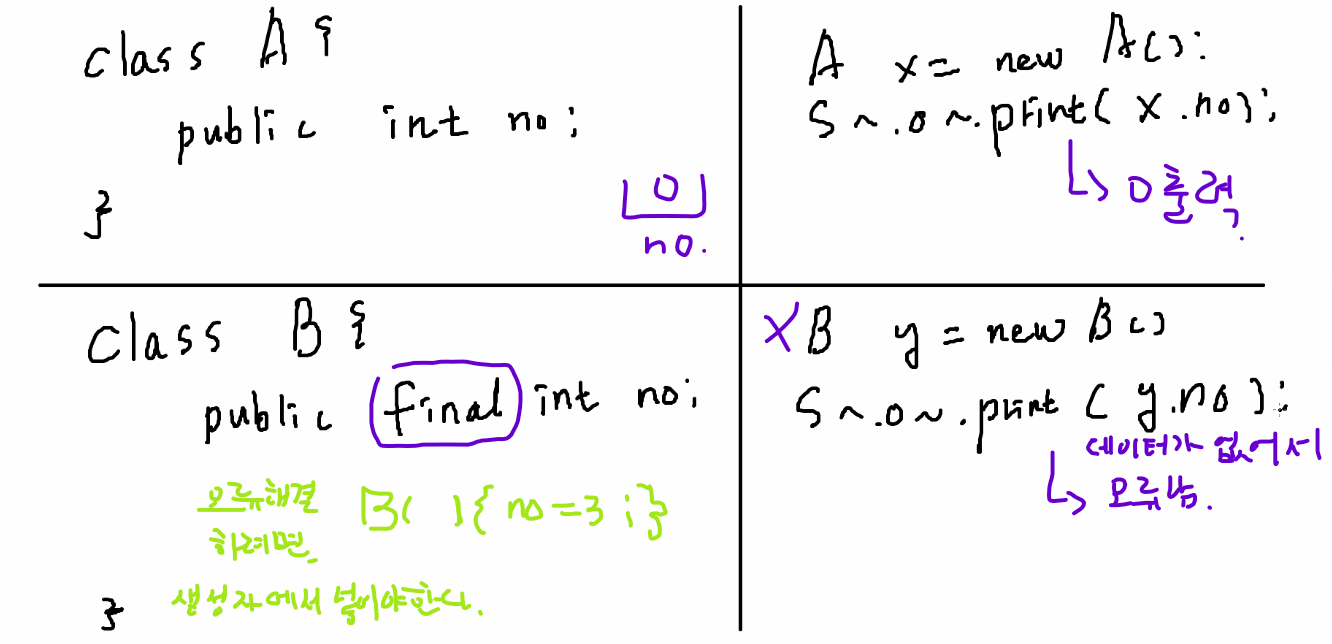 class A {
public int no;
}
0
no.
A x = new A();
S~.o~.print( x.no);
↳ 0 출력.
class B {
public final int no;
오류해결 B( ){ no = 3 ; }
하려면
생성자에서 넣어야한다.
}
X B y = new B()
S~.o~.print ( y.no );
데이터가 없어서
↳ 오류남.